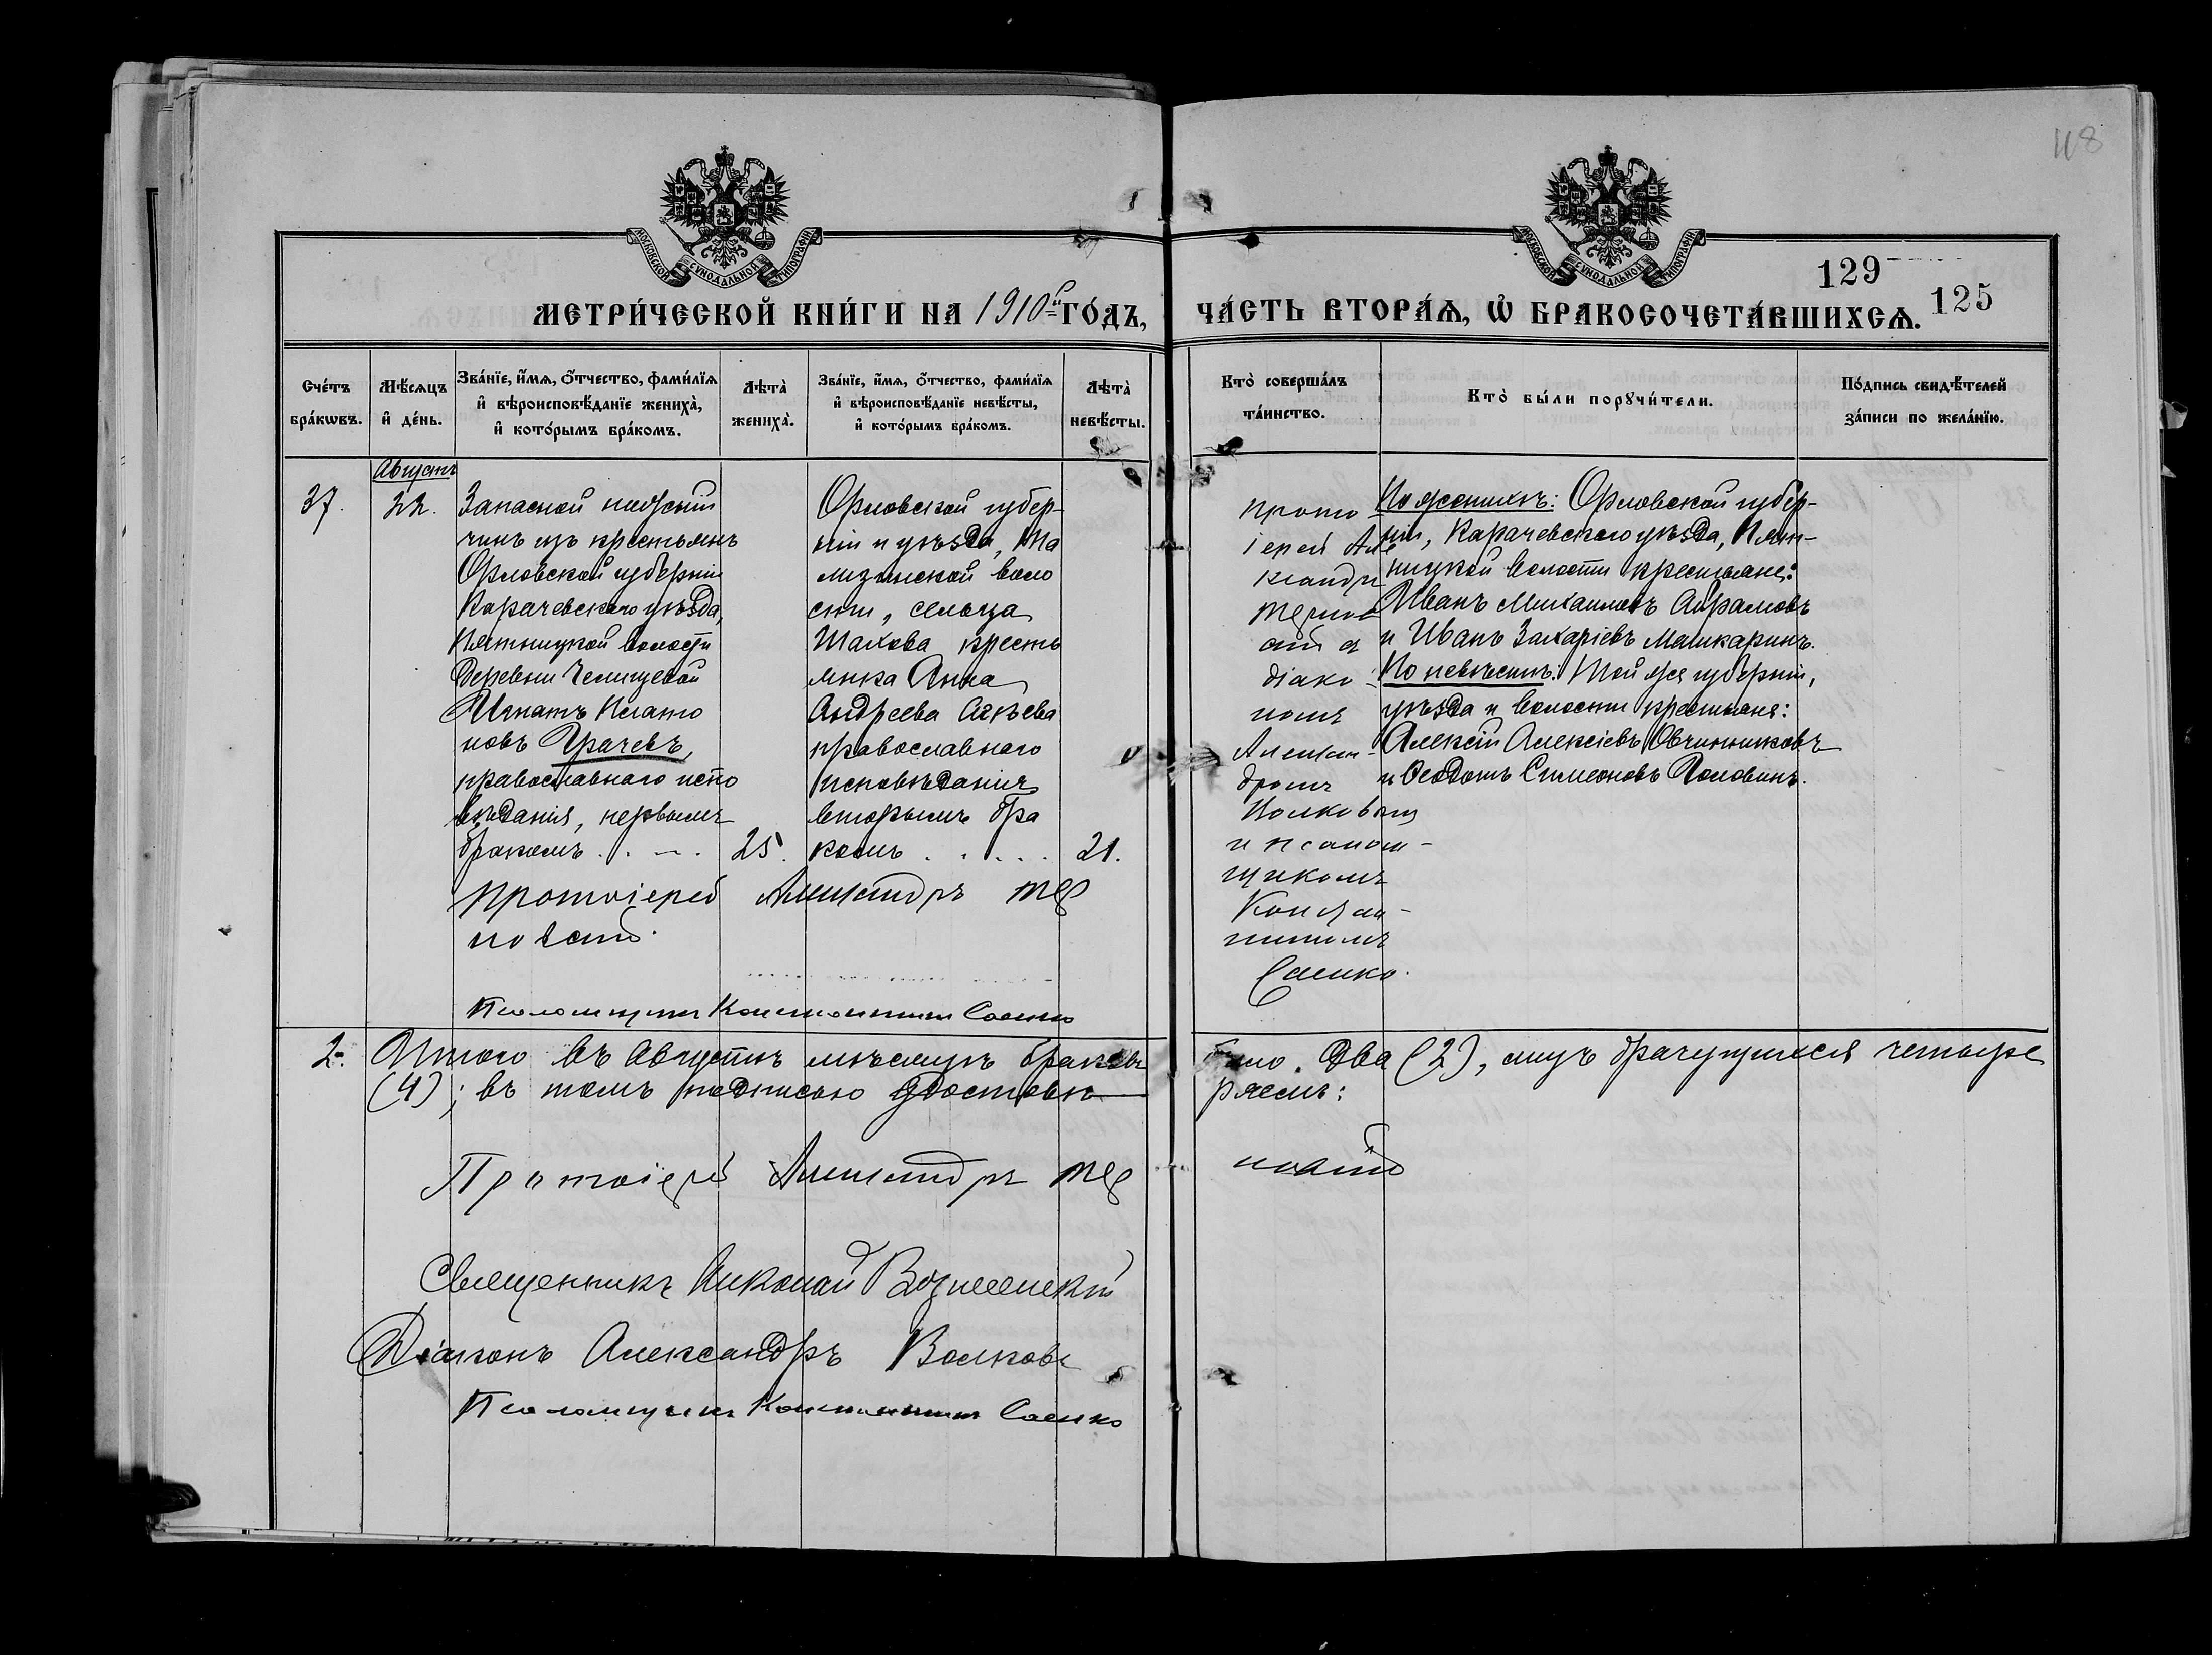 118
МОСКОВСКОЙ СѴНОДАЛЬНОЙ ТИПОГРАФІИ
МОСКОВСКОЙ СѴНОДАЛЬНОЙ ТИПОГРАФІИ
129
125
МЕТРИ́ЧЕСКОЙ КНИ́ГИ НА 1910й ГО́ДЪ,
ЧА́СТЬ ВТОРА́Ѧ, Ѡ҆ БРАКОСОЧЕТА́ВШИХСѦ.
Сче́тъ бра́кѡвъ.
Мѣ́сѧцъ и҆ де́нь.
Зва́нїе, и҆́мѧ, ѻ҆́тчество, фами́лїѧ и҆ вѣроисповѣ́данїе жениха̀, и҆ кото́рымъ бра́комъ.
Лѣта̀ жениха̀.
Зва́нїе, и҆́мѧ, ѻ҆́тчество, фами́лїѧ и҆ вѣроисповѣ́данїе невѣ́сты, и҆ кото́рымъ бра́комъ.
Лѣта̀ невѣ́сты.
Кто̀ соверша́лъ та́инство.
Кто̀ бы́ли порꙋчи́тели.
По́дпись свидѣ́телей за́писи по жела́нїю.
Августъ
37.
22.
Запасной нижній
чинъ изъ крестьянъ
Орловской губерніи
Карачевскаго уѣзда,
Пятницкой волости
деревни Челищевой
Игнатъ Плато
новъ Грачевъ,
православнаго испо
вѣданія, первымъ
бракомъ . . — .
25.
Орловской губер-
ніи и уѣзда,
волo
сти, сельца
Шахова кресть
янка Анна
Андреева
православнаго
исповѣданія
вторымъ бра
комъ . . . . .
21.
Протоіерей Александръ Тер
новскій.
Псаломщикъ Константинъ Саенко
прото-
іерей Але
ксандръ
Терновс
кій съ
діако-
номъ
Алексан-
дромъ
Волковымъ
и псалом-
щикомъ
Констан-
тиномъ
Саенко.
По женихѣ: Орловской губер-
ніи, Карачевскаго уѣзда, Пят-
ницкой волости крестьяне:
Иванъ Михаиловъ Абрамовъ
и Иванъ Захаріевъ Машкаринъ.
По невѣстѣ: Той же губерніи,
уѣзда и волости крестьяне:
Алексій Алексіевъ Овчинниковъ
и Ѳеодотъ Симеоновъ Головинъ.
2. Итого въ Августѣ мѣсяцѣ браковъ было два (2), лицъ брачущихся четыре
(4); въ томъ подписью удостовѣряемъ:
Протоіерей Александръ Терновскій
Священникъ Николай Вознесенскій
Діаконъ Александръ Волковъ
Псаломщикъ Константинъ Саенко